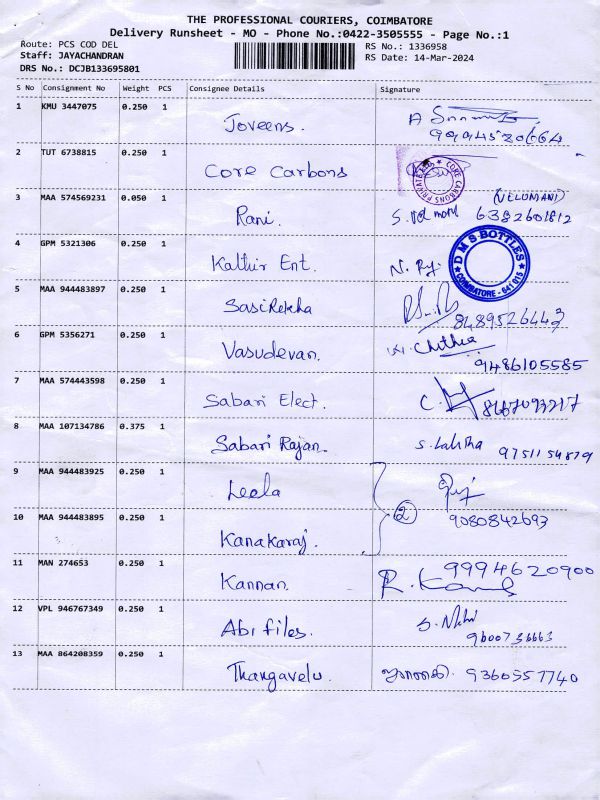 THE PROFESSIONAL COURIERS, COIMBATORE
Delivery Runsheet - MO - Phone No.:0422-3505555 - Page No.:1
Route: PCS COD DEL
RS No.: 1336958
Staff: JAYACHANDRAN
RS Date: 14-Mar-2024
DRS No.: DCJB133695801
S No Consignment No Weight PCS Consignee Details Signature
1 KMU 3447075 0.250 1 Joveens.
2 TUT 6738815 0.250 1 Core Carbons
CORE CARBONS PRIVATE
3 MAA 574569231 0.050 1 Rani. (VELUMANI)
6382601812
4 GPM 5321306 0.250 1 Kathir Ent.
DMS BOTTLES
COIMBATORE - 641 015
5 MAA 944483897 0.250 1 Sasirekha
8489526443
6 GPM 5356271 0.250 1 Vasudevan. Chithra
9486105585
7 MAA 574443598 0.250 1 Sabari Elect.
8 MAA 107134786 0.375 1 Sabari Rajan.
9751154879
9 MAA 944483925 0.250 1 Leela
2
9080842693
10 MAA 944483895 0.250 1 Kanakaraj.
11 MAN 274653 0.250 1 Kannan. 9994620900
12 VPL 946767349 0.250 1 Abi files.
13 MAA 864208359 0.250 1 Thangavelu. 9360557740